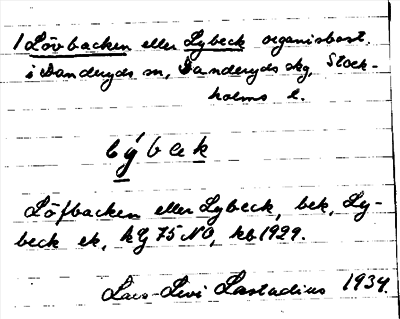 1 Lövbacken eller Lybeck organistbost.
i Danderyds sn, Danderyds skg, Stock-
holms l.
lýbek
Löfbacken eller Lybeck, bek, Ly-
beck ek, kg 75 NO, kb 1929.
Lars-Levi Læstadius 1934.